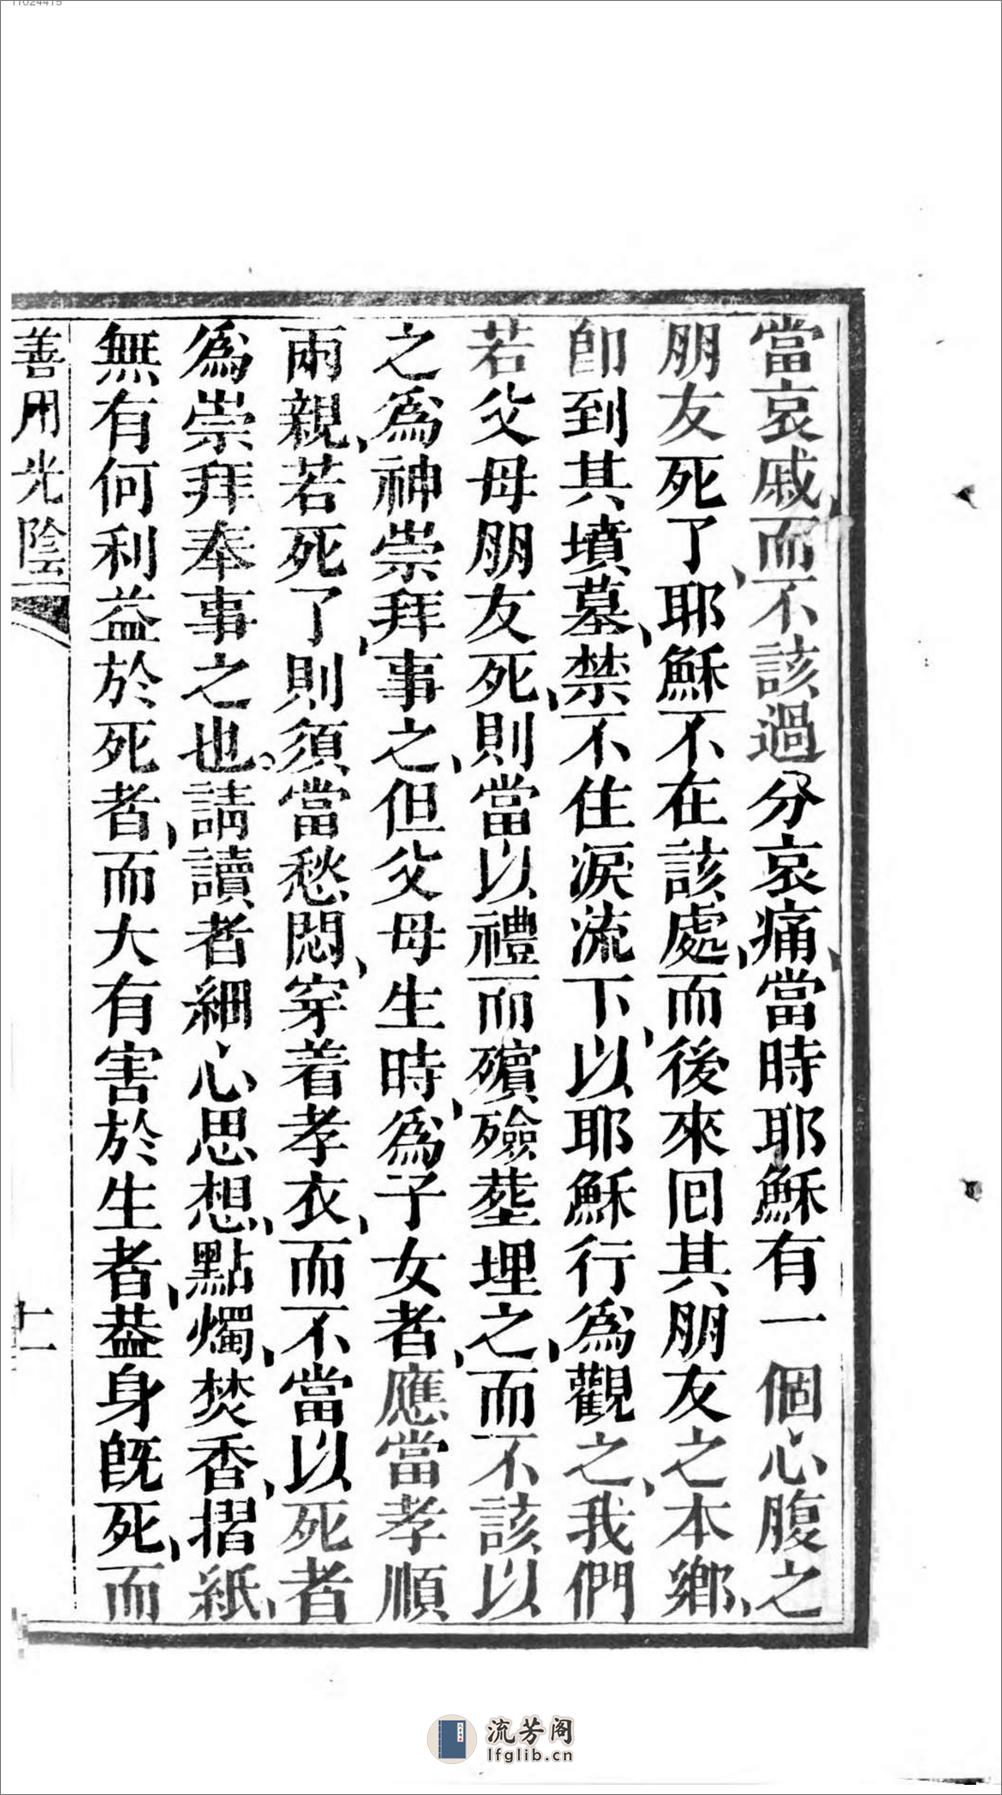 11024415
當哀戚、而不該過分哀痛、當時耶穌有一個心腹之
朋友死了、耶穌不在該處、而後來囘其朋友之本鄉、
卽到其墳墓、禁不住淚流下、以耶穌行爲觀之、我們
若父母朋友死、則當以禮而殯殮塟埋之、而不該以
之爲神崇拜事之、但父母生時、爲子女者、應當孝順
兩親、若死了、則須當愁悶、穿着孝衣、而不當以死者
爲崇拜奉事之也。請讀者細心思想、點燭、焚香、摺紙、
無有何利益於死者、而大有害於生者、葢身旣死、而
善用光陰
十一
流芳阁
lfglib.cn